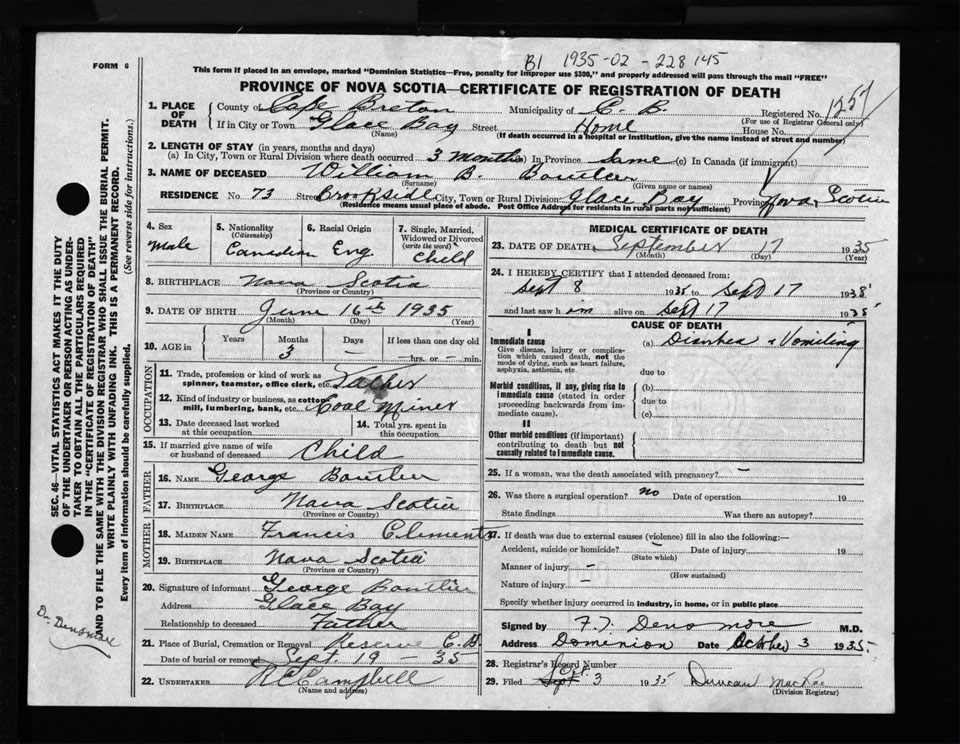 B1 1935-02-228145
FORM 6
This form if placed in an envelope, marked "Dominion Statistics—Free, penalty for improper use $300," and properly addressed will pass through the mail "FREE"
PROVINCE OF NOVA SCOTIA—CERTIFICATE OF REGISTRATION OF DEATH
1. PLACE OF DEATH
County of Cape Breton Municipality of C. B. Registered No. 1257
(For use of Registrar General only)
If in City or Town Glace Bay Street Home House No.
(Name) (If death occurred in a hospital or institution, give the name instead of street and number)
2. LENGTH OF STAY (in years, months and days)
(a) In City, Town or Rural Division where death occurred 3 months (b) In Province Same (c) In Canada (if immigrant)
3. NAME OF DECEASED William B. Boutlier
(Surname) (Given name or names)
RESIDENCE No 73 Street Brookside City, Town or Rural Division Glace Bay Province Nova Scotia
(Residence means usual place of abode. Post Office Address for residents in rural parts not sufficient)
4. Sex Male
5. Nationality (Citizenship) Canadian
6. Racial Origin Eng.
7. Single, Married, Widowed or Divorced (write the word) Child
8. BIRTHPLACE Nova Scotia
(Province or Country)
9. DATE OF BIRTH June 16th 1935
(Month) (Day) (Year)
10. AGE in Years Months 3 Days – If less than one day old
– hrs. or – min.
OCCUPATION
11. Trade, profession or kind of work as spinner, teamster, office clerk, etc. Father
12. Kind of industry or business, as cotton mill, lumbering, bank, etc. Coal Miner
13. Date deceased last worked at this occupation
14. Total yrs. spent in this occupation
15. If married give name of wife or husband of deceased Child
FATHER
16. NAME George Boutlier
17. BIRTHPLACE Nova Scotia
(Province or Country)
MOTHER
18. MAIDEN NAME Francis Clements
19. BIRTHPLACE Nova Scotia
(Province or Country)
20. Signature of informant George Boutlier
Address Glace Bay
Relationship to deceased Father
21. Place of Burial, Cremation or Removal Reserve C.B.
Date of burial or removal Sept. 19 – 35
22. UNDERTAKER R C Campbell
(Name and address)
MEDICAL CERTIFICATE OF DEATH
23. DATE OF DEATH September 17 1935
(Month) (Day) (Year)
24. I HEREBY CERTIFY that I attended deceased from:
Sept 8 1935 to Sept 17 1935
and last saw him alive on Sept 17 1935
CAUSE OF DEATH
I
Immediate cause
Give disease, injury or complication which caused death, not the mode of dying, such as heart failure, asphyxia, asthenia, etc.
(a) Diarrhea & Vomiting
due to
Morbid conditions, if any, giving rise to immediate cause (stated in order proceeding backwards from immediate cause).
(b)
due to
(c)
II
Other morbid conditions (if important) contributing to death but not causally related to immediate cause.
25. If a woman, was the death associated with pregnancy? –
26. Was there a surgical operation? no Date of operation 19
State findings Was there an autopsy?
27. If death was due to external causes (violence) fill in also the following:—
Accident, suicide or homicide? – Date of injury 19
(State which)
Manner of injury –
(How sustained)
Nature of injury –
Specify whether injury occurred in industry, in home, or in public place
Signed by F. T. Densmore M.D.
Address Dominion Date October 3 1935
28. Registrar's Record Number
29. Filed Sept Oct. 3 1935 Duncan MacRae
(Division Registrar)
SEC. 46—VITAL STATISTICS ACT MAKES IT THE DUTY
OF THE UNDERTAKER OR PERSON ACTING AS UNDER-
TAKER TO OBTAIN ALL THE PARTICULARS REQUIRED
IN THE "CERTIFICATE OF REGISTRATION OF DEATH"
AND TO FILE THE SAME WITH THE DIVISION REGISTRAR WHO SHALL ISSUE THE BURIAL PERMIT.
WRITE PLAINLY WITH UNFADING INK. THIS IS A PERMANENT RECORD.
Every item of information should be carefully supplied. (See reverse side for instructions.)
Dr. Densmore